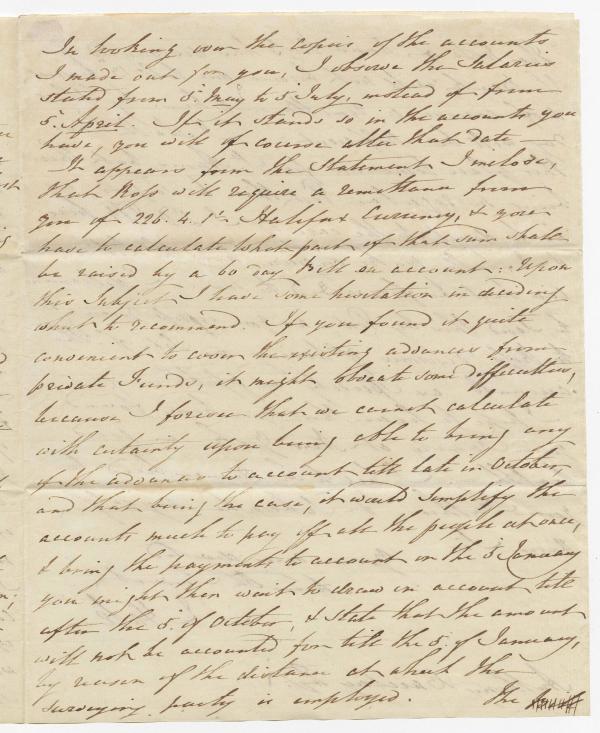 In looking over the copies of the accounts
I made out for you, I observe the Salaries
stated from 5. May to 5 July, instead of from
5. April. If it stands so in the accounts you
have, you will of course alter that date
It appears from the Statement I inclose,
that Ross will require a remittance from
you of 226. 4. 1d Halifax Currency, & you
have to calculate what part of that sum shall
be raised by a 60 day Bill on account: Upon
this Subject I have some hesitation in deciding
what to recommend. If you found it quite
convenient to cover the existing advances from
private Funds, it might obviate some difficulties,
because I foresee that we cannot calculate
with certainty upon being able to bring any
of the advances to account till late in October,
and that being the case, it would simplify the
accounts much to pay off all the people at once,
& bring the payments to account on the 5 January
you might then wait to draw on account till
after the 5. of October, & state that the amount
will not be accounted for till the 5. of January,
by reason of the distance at which the
surveying party is employed. The